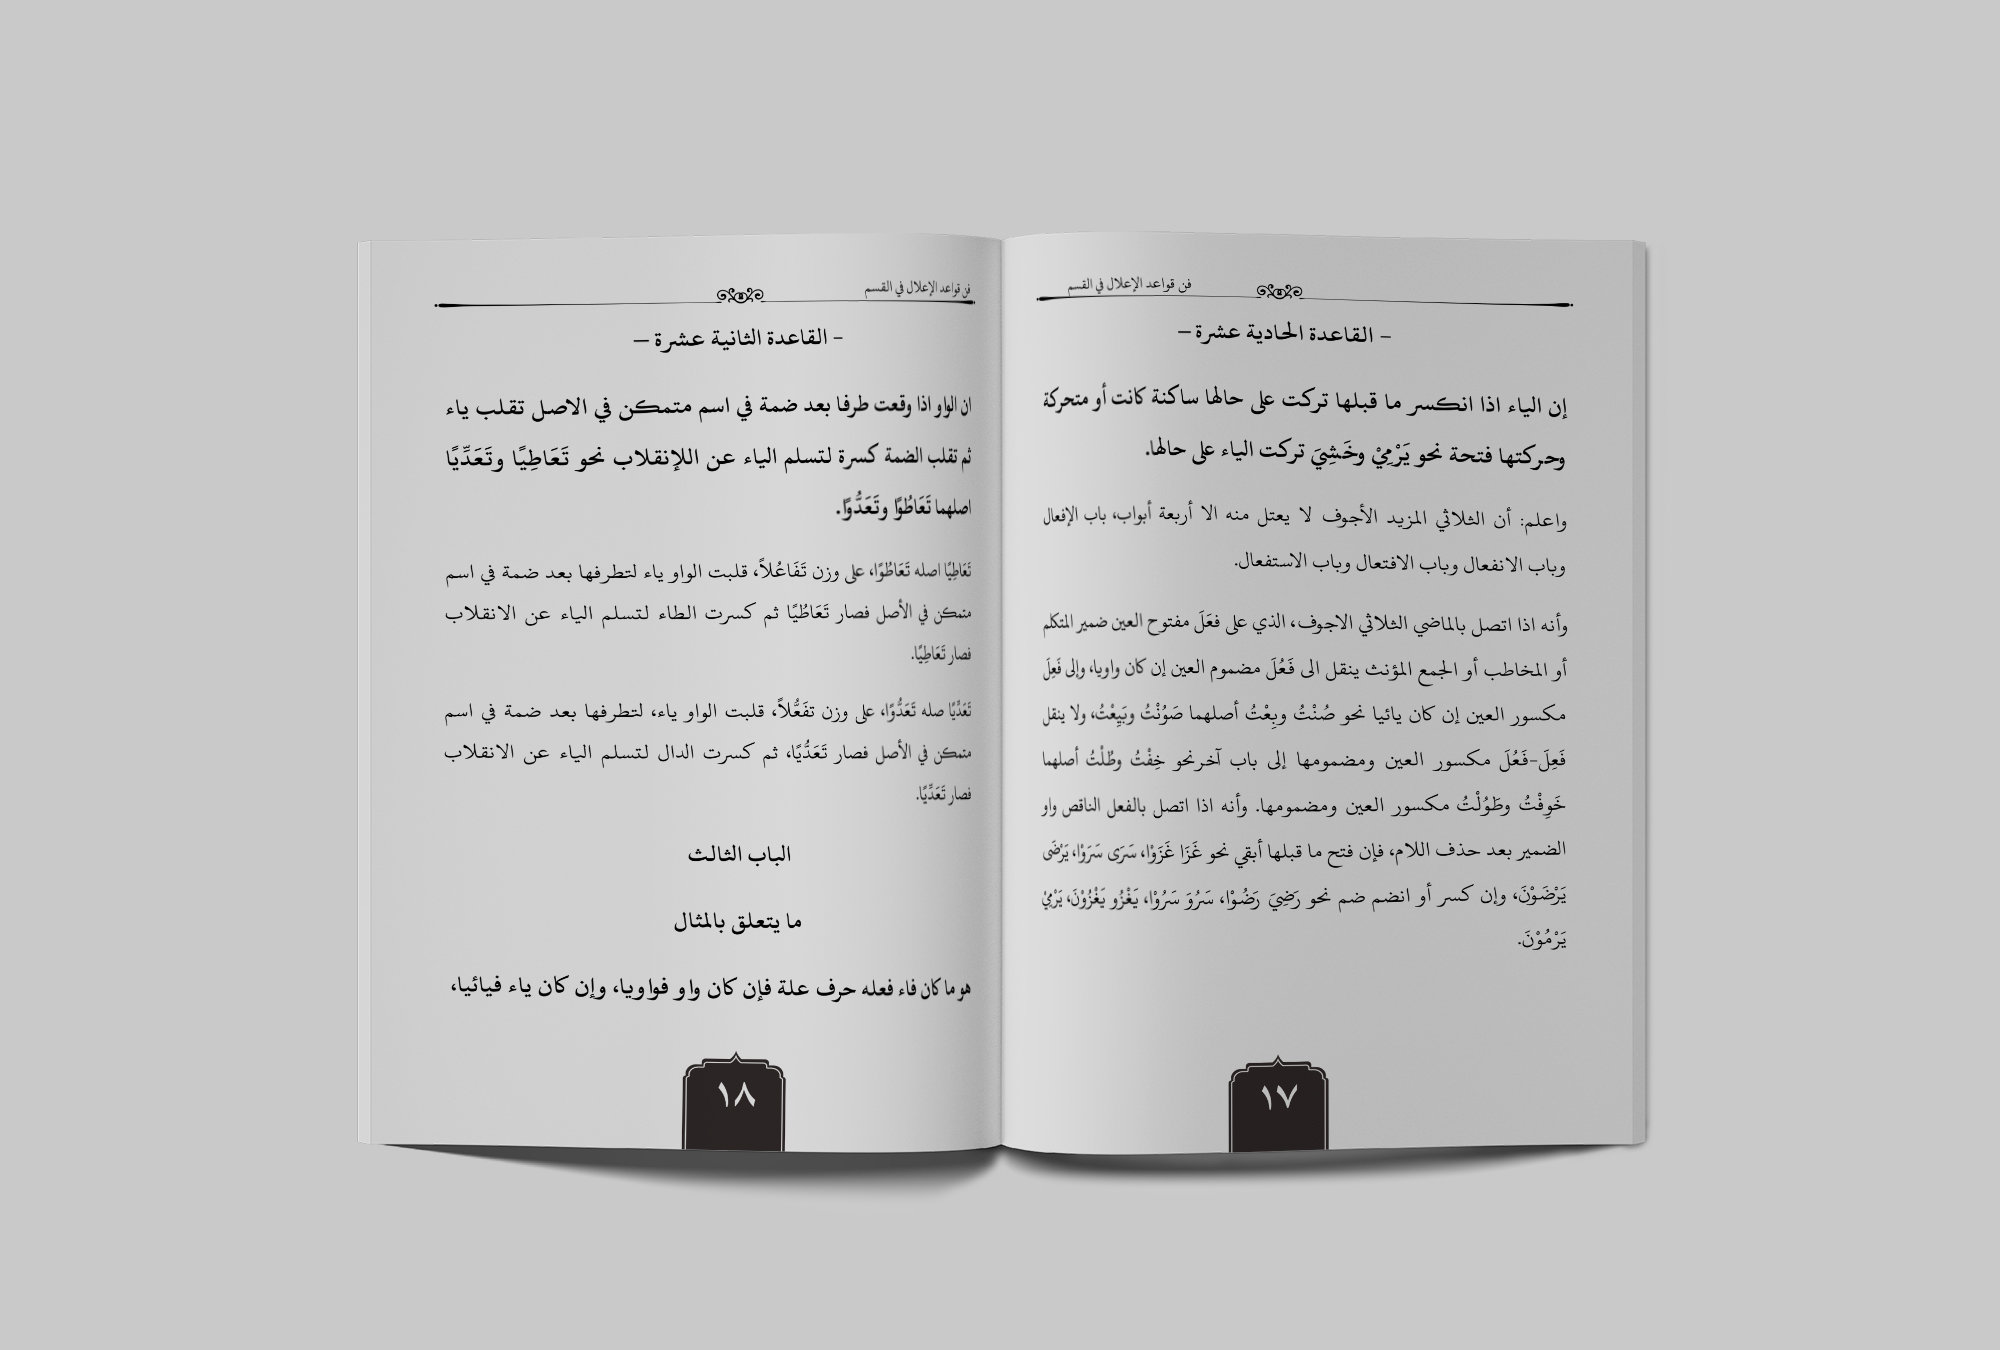 فن قواعد الإعلال في القسم
– القاعدة الحادية عشرة –
إن الياء اذا انكسر ما قبلها تركت على حالها ساكنة كانت أو متحركة
وحركتها فتحة نحو يَرْمِيْ وخَشِيَ تركت الياء على حالها.
واعلم: أن الثلاثي المزيد الأجوف لا يعتل منه الا أربعة أبواب، باب الإفعال
وباب الانفعال وباب الافتعال وباب الاستفعال.
وأنه اذا اتصل بالماضي الثلاثي الاجوف، الذي على فعَلَ مفتوح العين ضمير المتكلم
أو المخاطب أو الجمع المؤنث ينقل الى فَعُلَ مضموم العين إن كان واويا، وإلى فَعِلَ
مكسور العين إن كان يائيا نحو صُنْتُ وبِعْتُ أصلهما صَوُنْتُ وبَيِعْتُ، ولا ينقل
فَعِلَ-فَعُلَ مكسور العين ومضمومها إلى باب آخرنحو خِفْتُ وطُلْتُ أصلهما
خَوِفْتُ وطَوُلْتُ مكسور العين ومضمومها. وأنه اذا اتصل بالفعل الناقص واو
الضمير بعد حذف اللام، فإن فتح ما قبلها أبقي نحو غَزَا غَزَوْا، سَرَى سَرَوْا، يَرْضَى
يَرْضَوْنَ، وإن كسر أو انضم ضم نحو رَضِيَ رَضُوْا، سَرُوَ سَرُوْا، يَغْزُو يَغْزُوْنَ، يَرْمِيْ
يَرْمُوْنَ.
١٧
فن قواعد الإعلال في القسم
– القاعدة الثانية عشرة –
ان الواو اذا وقعت طرفا بعد ضمة في اسم متمكن في الاصل تقلب ياء
ثم تقلب الضمة كسرة لتسلم الياء عن اللإنقلاب نحو تَعَاطِيًا وتَعَدِّيًا
اصلهما تَعَاطُوًا وتَعَدُّوًا.
تَعَاطِيًا اصله تَعَاطُوًا، على وزن تَفَاعُلاً، قلبت الواو ياء لتطرفها بعد ضمة في اسم
متمكن في الأصل فصار تَعَاطُيًا ثم كسرت الطاء لتسلم الياء عن الانقلاب
فصار تَعَاطِيًا.
تَعَدِّيًا صله تَعَدُّوًا، على وزن تفَعُّلاً، قلبت الواو ياء، لتطرفها بعد ضمة في اسم
متمكن في الأصل فصار تَعَدُّيًا، ثم كسرت الدال لتسلم الياء عن الانقلاب
فصار تَعَدِّيًا.
الباب الثالث
ما يتعلق بالمثال
هو ما كان فاء فعله حرف علة فإن كان واو فواويا، وإن كان ياء فيائيا،
١٨